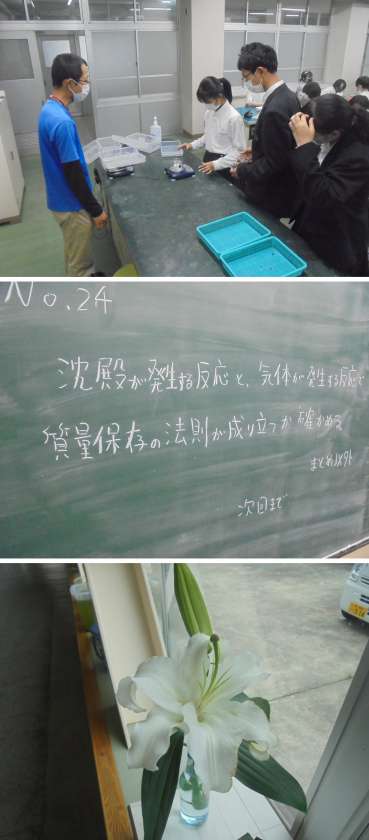 No.24
沈殿が発生する反応と、気体が発生する反応で
質量保存の法則が成り立つか確かめる
まとめ以外
次回まで